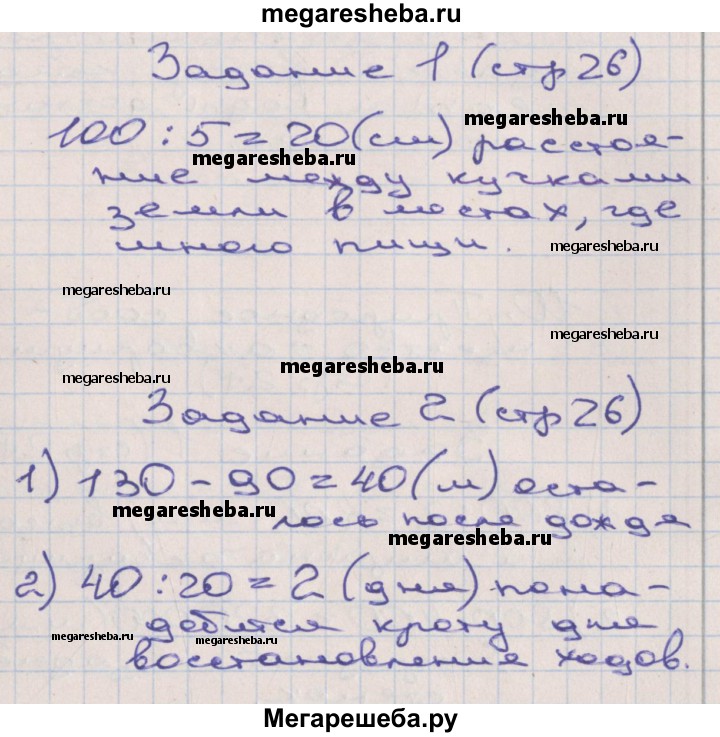 megaresheba.ru
Задание 1 (стр 26)
100 : 5 = 20 (см) расстоя-
megaresheba.ru
megaresheba.ru
ние между кучками
земли в местах, где
много пищи.
megaresheba.ru
megaresheba.ru
megaresheba.ru
megaresheba.ru
megaresheba.ru
Задание 2 (стр 26)
1) 130 - 90 = 40 (м) оста-
megaresheba.ru
лось после дождя
megaresheba.ru
2) 40 : 20 = 2 (дня) пона-
добится кроту для
megaresheba.ru
megaresheba.ru
восстановления ходов.
megaresheba.ru
Мегарешеба.ру